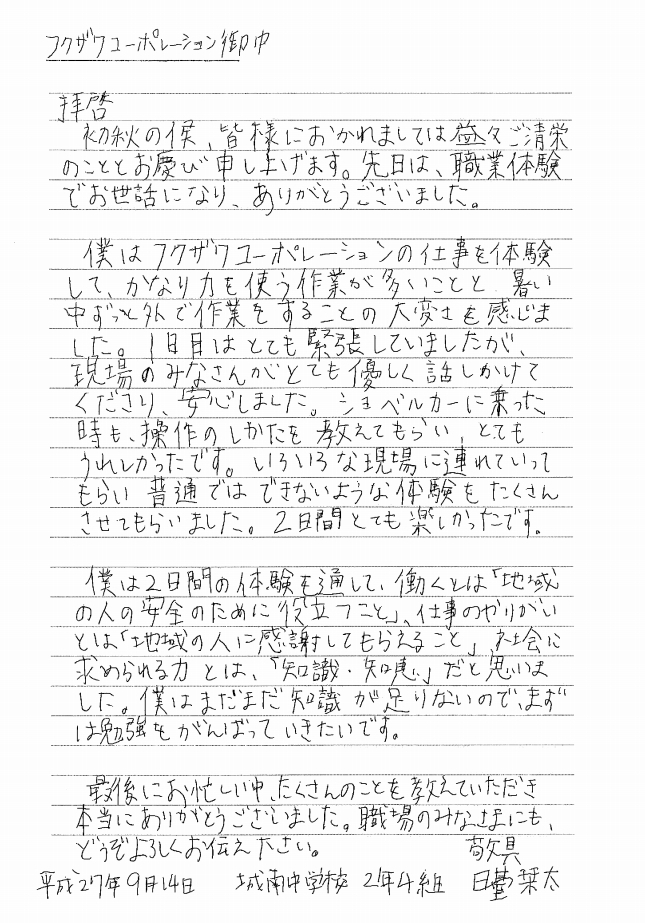 フクザワコーポレーション御中
拝啓
初秋の候、皆様におかれましては益々ご清栄
のこととお慶び申し上げます。先日は、職業体験
でお世話になり、ありがとうございました。
僕はフクザワコーポレーションの仕事を体験
して、かなり力を使う作業が多いことと、暑い
中ずっと外で作業をすることの大変さを感じま
した。1日目はとても緊張していましたが、
現場のみなさんがとても優しく話しかけて
くださり、安心しました。ショベルカーに乗った
時も、操作のしかたを教えてもらい、とても
うれしかったです。いろいろな現場に連れていって
もらい普通ではできないような体験をたくさん
させてもらいました。2日間とても楽しかったです。
僕は2日間の体験を通して、働くとは「地域
の人の安全のために役立つこと」、仕事のやりがい
とは「地域の人に感謝してもらえること」、社会に
求められる力とは、「知識・知恵」だと思いま
した。僕はまだまだ知識が足りないので、まず
は勉強をがんばっていきたいです。
最後にお忙しい中、たくさんのことを教えていただき
本当にありがとうございました。職場のみなさまにも、
どうぞよろしくお伝え下さい。 敬具
平成27年9月14日 城南中学校 2年4組 日臺栞太